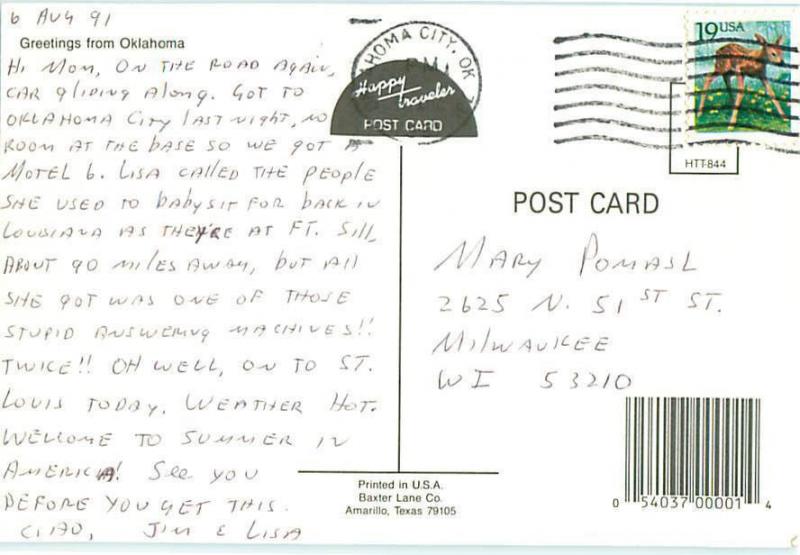 6 AUG 91
Greetings from Oklahoma
HI MOM, ON THE ROAD AGAIN,
CAR GLIDING ALONG. GOT TO
OKLAHOMA CITY LAST NIGHT, NO
ROOM AT THE BASE SO WE GOT A
MOTEL 6. LISA CALLED THE PEOPLE
SHE USED TO BABYSIT FOR BACK IN
LOUSIANA AS THEY'RE AT FT. SILL,
ABOUT 90 MILES AWAY, BUT ALL
SHE GOT WAS ONE OF THOSE
STUPID ANSWERING MACHINES!!
TWICE!! OH WELL, ON TO ST.
LOUIS TODAY. WEATHER HOT.
WELCOME TO SUMMER IN
AMERICA! SEE YOU
BEFORE YOU GET THIS.
CIAO, JIM & LISA
HOMA CITY, OK
PM
Happy
traveler
POST CARD
19 USA
HTT-844
POST CARD
MARY POMASL
2625 N. 51ST ST.
MILWAUKEE
WI 53210
Printed in U.S.A.
Baxter Lane Co.
Amarillo, Texas 79105
0 54037 00001 4